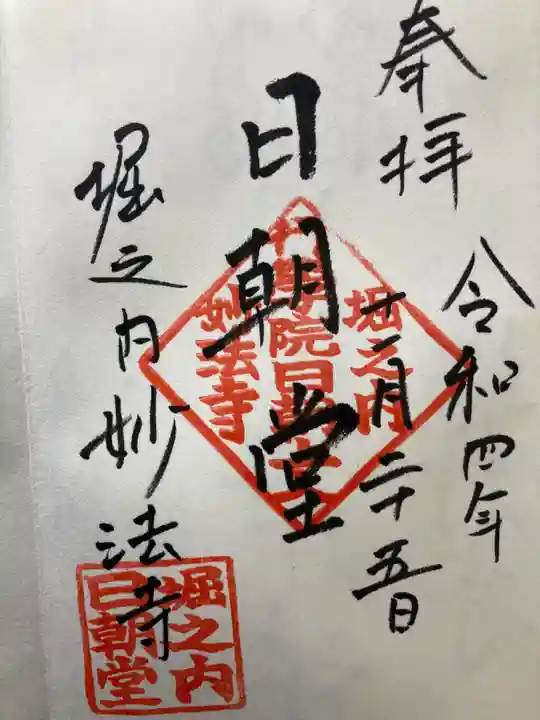 奉拝
令和四年
十一月二十五日
日朝堂
堀之内妙法寺
堀之内
妙法寺
堀之内
日朝堂